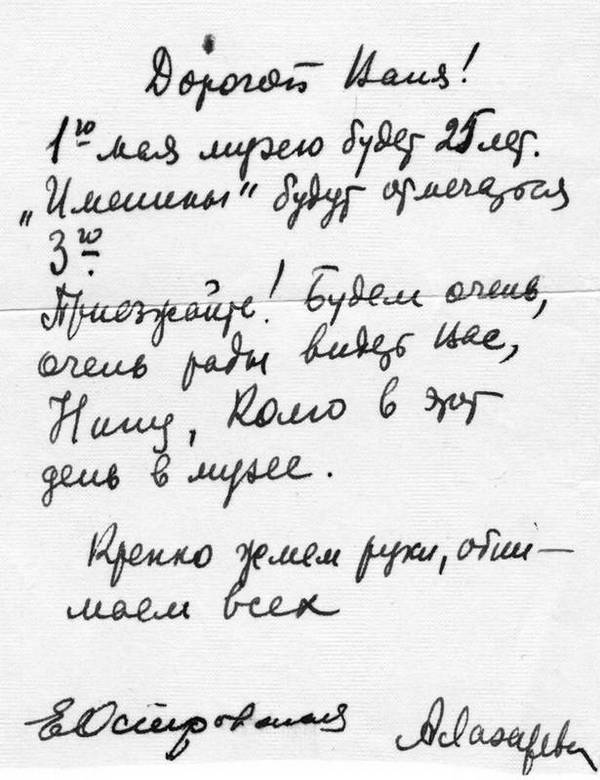 Дорогой Ваня!
1го мая музею будет 25 лет.
„Именины" будут отмечаться
3го.
Приезжайте! Будем очень,
очень рады видеть Вас,
Нину, Колю в этот
день в музее.
Крепко жмем руки, обни—
маем всех
ЕОстровская
АЛазарева